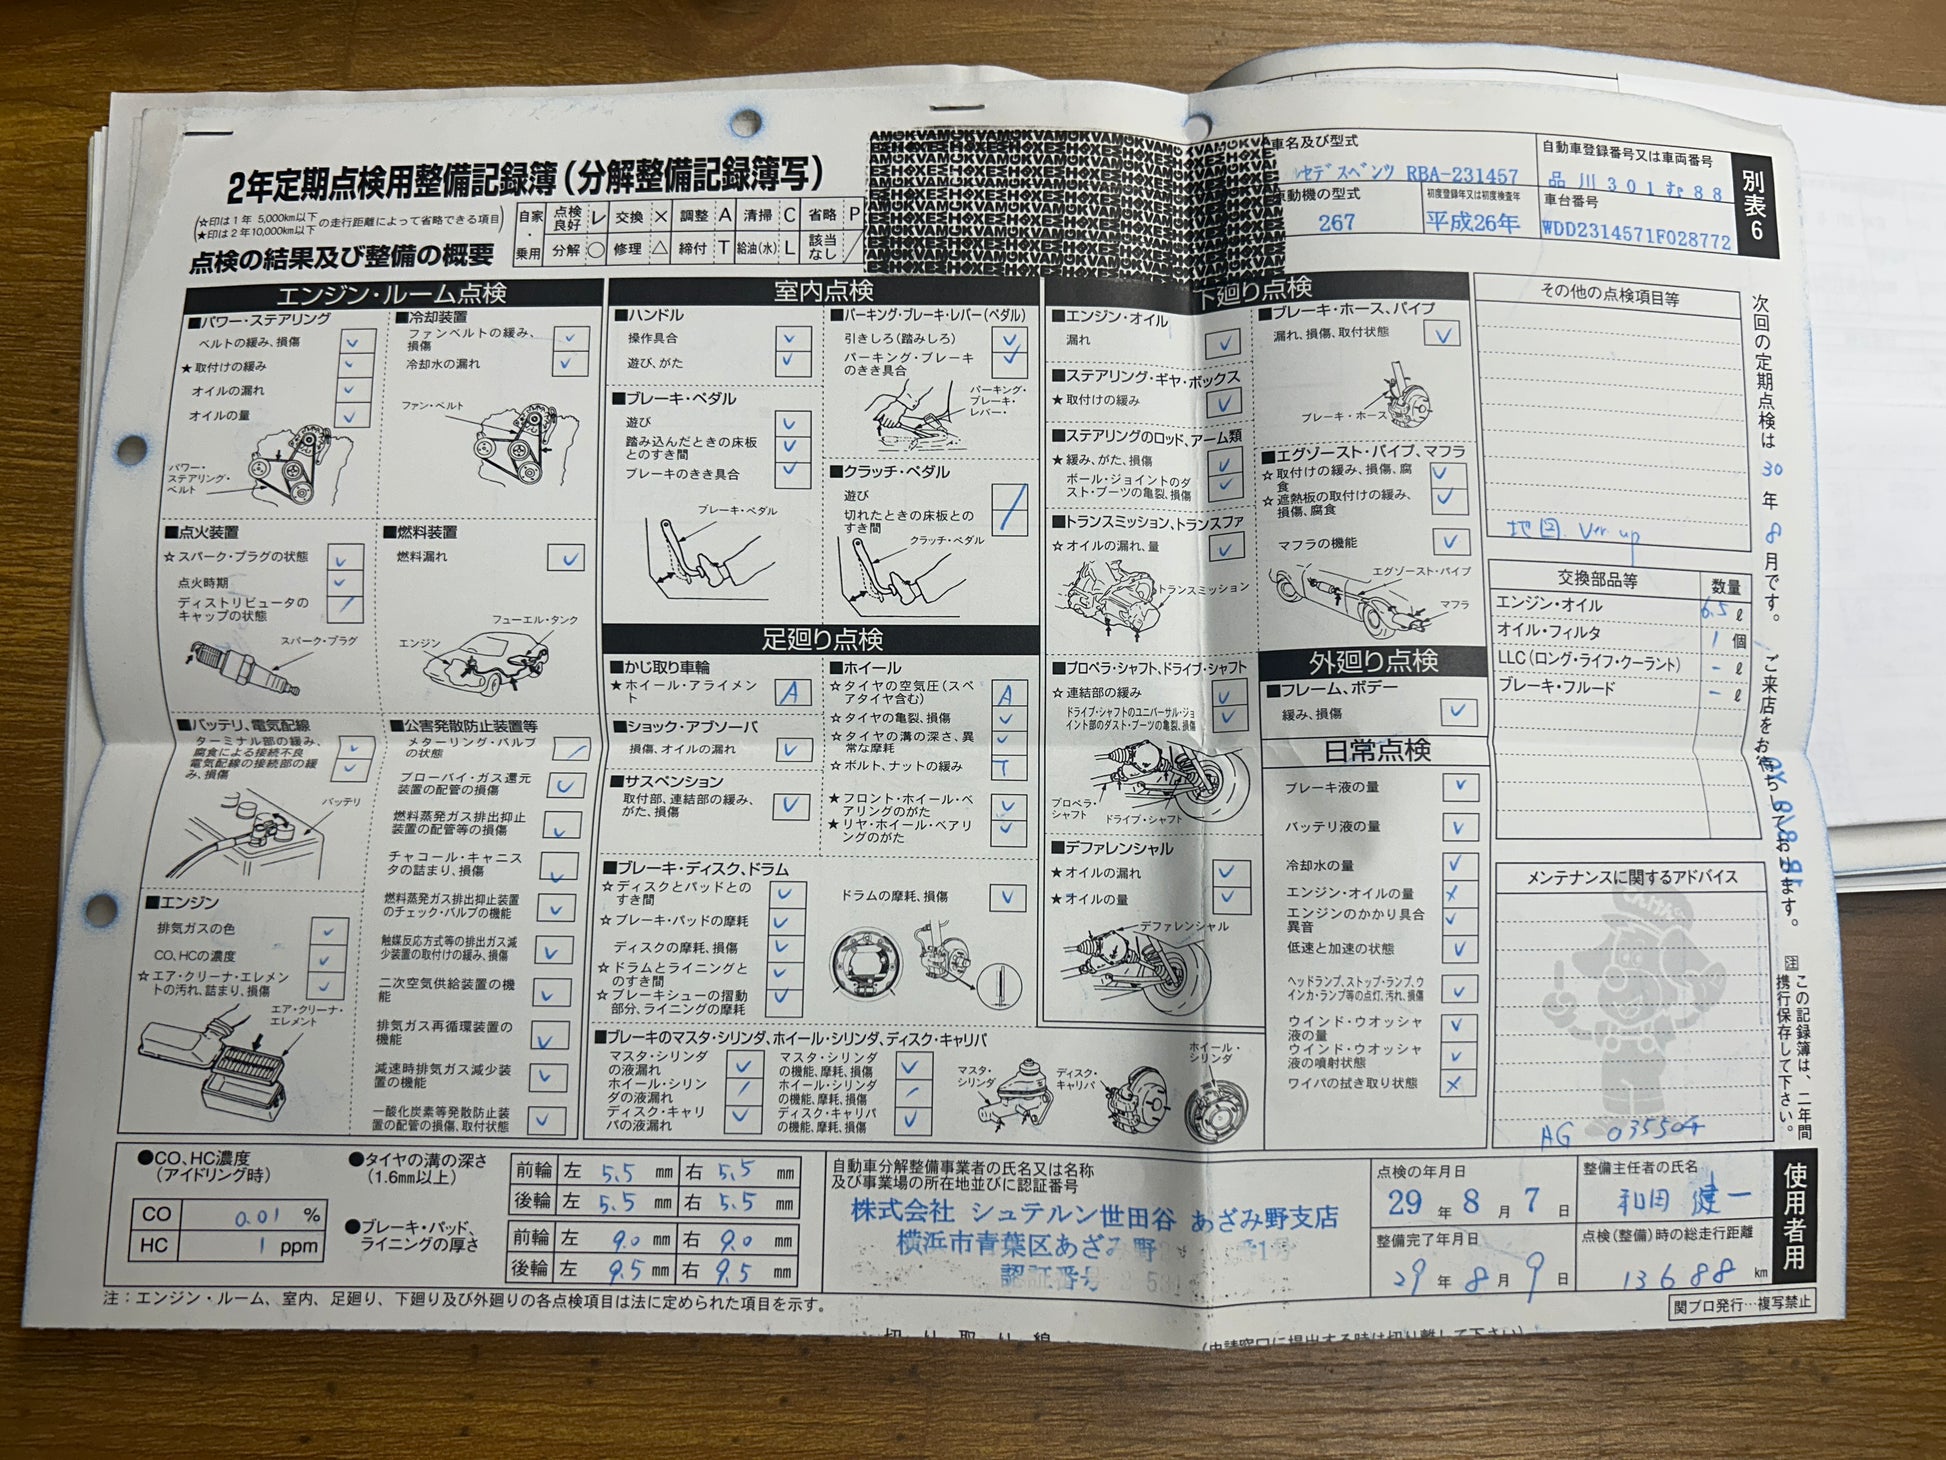 2年定期点検用整備記録簿(分解整備記録簿写)
(☆印は1年 5,000km以下
★印は2年10,000km以下 の走行距離によって省略できる項目)
点検の結果及び整備の概要
自家・乗用
点検良好 レ 交換 × 調整 A 清掃 C 省略 P
分解 ○ 修理 △ 締付 T 給油(水) L 該当なし /
車名及び型式
セデスベンツ RBA-231457
自動車登録番号又は車両番号
品川301む88
別表6
動機の型式
267
初度登録年又は初度検査年
平成26年
車台番号
WDD2314571F028772
エンジン・ルーム点検
■パワー・ステアリング
ベルトの緩み、損傷 レ
★取付けの緩み レ
オイルの漏れ レ
オイルの量 レ
パワー・ステアリング・ベルト
■冷却装置
ファンベルトの緩み、損傷 レ
冷却水の漏れ レ
ファン・ベルト
■点火装置
☆スパーク・プラグの状態 レ
点火時期 レ
ディストリビュータのキャップの状態 /
スパーク・プラグ
■燃料装置
燃料漏れ レ
フューエル・タンク
エンジン
■バッテリ、電気配線
ターミナル部の緩み、腐食による接続不良 レ
電気配線の接続部の緩み、損傷 レ
バッテリ
■公害発散防止装置等
メターリング・バルブの状態 /
ブローバイ・ガス還元装置の配管の損傷 レ
燃料蒸発ガス排出抑止装置の配管等の損傷 レ
チャコール・キャニスタの詰まり、損傷 レ
燃料蒸発ガス排出抑止装置のチェック・バルブの機能 レ
触媒反応方式等の排出ガス減少装置の取付けの緩み、損傷 レ
二次空気供給装置の機能 レ
排気ガス再循環装置の機能 レ
減速時排気ガス減少装置の機能 レ
一酸化炭素等発散防止装置の配管の損傷、取付状態 レ
■エンジン
排気ガスの色 レ
CO、HCの濃度 レ
☆エア・クリーナ・エレメントの汚れ、詰まり、損傷 レ
エア・クリーナ・エレメント
室内点検
■ハンドル
操作具合 レ
遊び、がた レ
■ブレーキ・ペダル
遊び レ
踏み込んだときの床板とのすき間 レ
ブレーキのきき具合 レ
ブレーキ・ペダル
■パーキング・ブレーキ・レバー(ペダル)
引きしろ(踏みしろ) レ
パーキング・ブレーキのきき具合 レ
パーキング・ブレーキ・レバー・
■クラッチ・ペダル
遊び
切れたときの床板とのすき間 /
クラッチ・ペダル
足廻り点検
■かじ取り車輪
★ホイール・アライメント A
■ショック・アブソーバ
損傷、オイルの漏れ レ
■サスペンション
取付部、連結部の緩み、がた、損傷 レ
■ホイール
☆タイヤの空気圧(スペアタイヤ含む) A
☆タイヤの亀裂、損傷 レ
☆タイヤの溝の深さ、異常な摩耗 レ
☆ボルト、ナットの緩み T
★フロント・ホイール・ベアリングのがた レ
★リヤ・ホイール・ベアリングのがた レ
■ブレーキ・ディスク、ドラム
☆ディスクとパッドとのすき間 レ
☆ブレーキ・パッドの摩耗 レ
ディスクの摩耗、損傷 レ
☆ドラムとライニングとのすき間 レ
☆ブレーキシューの摺動部分、ライニングの摩耗 レ
ドラムの摩耗、損傷 レ
■ブレーキのマスタ・シリンダ、ホイール・シリンダ、ディスク・キャリパ
マスタ・シリンダの液漏れ レ
ホイール・シリンダの液漏れ /
ディスク・キャリパの液漏れ レ
マスタ・シリンダの機能、摩耗、損傷 レ
ホイール・シリンダの機能、摩耗、損傷 /
ディスク・キャリパの機能、摩耗、損傷 レ
マスタ・シリンダ
ディスク・キャリパ
ホイール・シリンダ
下廻り点検
■エンジン・オイル
漏れ レ
■ステアリング・ギヤ・ボックス
★取付けの緩み レ
■ステアリングのロッド、アーム類
★緩み、がた、損傷 レ
ボール・ジョイントのダスト・ブーツの亀裂、損傷 レ
■トランスミッション、トランスファ
☆オイルの漏れ、量 レ
トランスミッション
■プロペラ・シャフト、ドライブ・シャフト
☆連結部の緩み レ
ドライブ・シャフトのユニバーサル・ジョイント部のダスト・ブーツの亀裂、損傷 レ
プロペラ・シャフト
ドライブ・シャフト
■デファレンシャル
★オイルの漏れ レ
★オイルの量 レ
デファレンシャル
■ブレーキ・ホース、パイプ
漏れ、損傷、取付状態 レ
ブレーキ・ホース
■エグゾースト・パイプ、マフラ
☆取付けの緩み、損傷、腐食 レ
☆遮熱板の取付けの緩み、損傷、腐食 レ
マフラの機能 レ
エグゾースト・パイプ
マフラ
外廻り点検
■フレーム、ボデー
緩み、損傷 レ
日常点検
ブレーキ液の量 レ
バッテリ液の量 レ
冷却水の量 レ
エンジン・オイルの量 ×
エンジンのかかり具合異音 レ
低速と加速の状態 レ
ヘッドランプ、ストップ・ランプ、ウインカ・ランプ等の点灯、汚れ、損傷 レ
ウインド・ウオッシャ液の量 レ
ウインド・ウオッシャ液の噴射状態 レ
ワイパの拭き取り状態 ×
その他の点検項目等
地図 Ver up
交換部品等 数量
エンジン・オイル 6.5 ℓ
オイル・フィルタ 1 個
LLC(ロング・ライフ・クーラント) - ℓ
ブレーキ・フルード - ℓ
メンテナンスに関するアドバイス
AG 035504
次回の定期点検は 30 年 8 月です。ご来店をお待ちしております。
注 この記録簿は、二年間携行保存して下さい。
使用者用
●CO、HC濃度(アイドリング時)
CO 0.01 %
HC 1 ppm
●タイヤの溝の深さ(1.6mm以上)
前輪 左 5.5 mm 右 5.5 mm
後輪 左 5.5 mm 右 5.5 mm
●ブレーキ・パッド、ライニングの厚さ
前輪 左 9.0 mm 右 9.0 mm
後輪 左 9.5 mm 右 9.5 mm
自動車分解整備事業者の氏名又は名称及び事業場の所在地並びに認証番号
株式会社 シュテルン世田谷 あざみ野支店
横浜市青葉区あざみ野
認証番号
点検の年月日
29 年 8 月 7 日
整備主任者の氏名
和田 健一
整備完了年月日
29 年 8 月 9 日
点検(整備)時の総走行距離
13688 km
注:エンジン・ルーム、室内、足廻り、下廻り及び外廻りの各点検項目は法に定められた項目を示す。
関プロ発行…複写禁止
切り取り線
(申請窓口に提出する時は切り離して下さい)